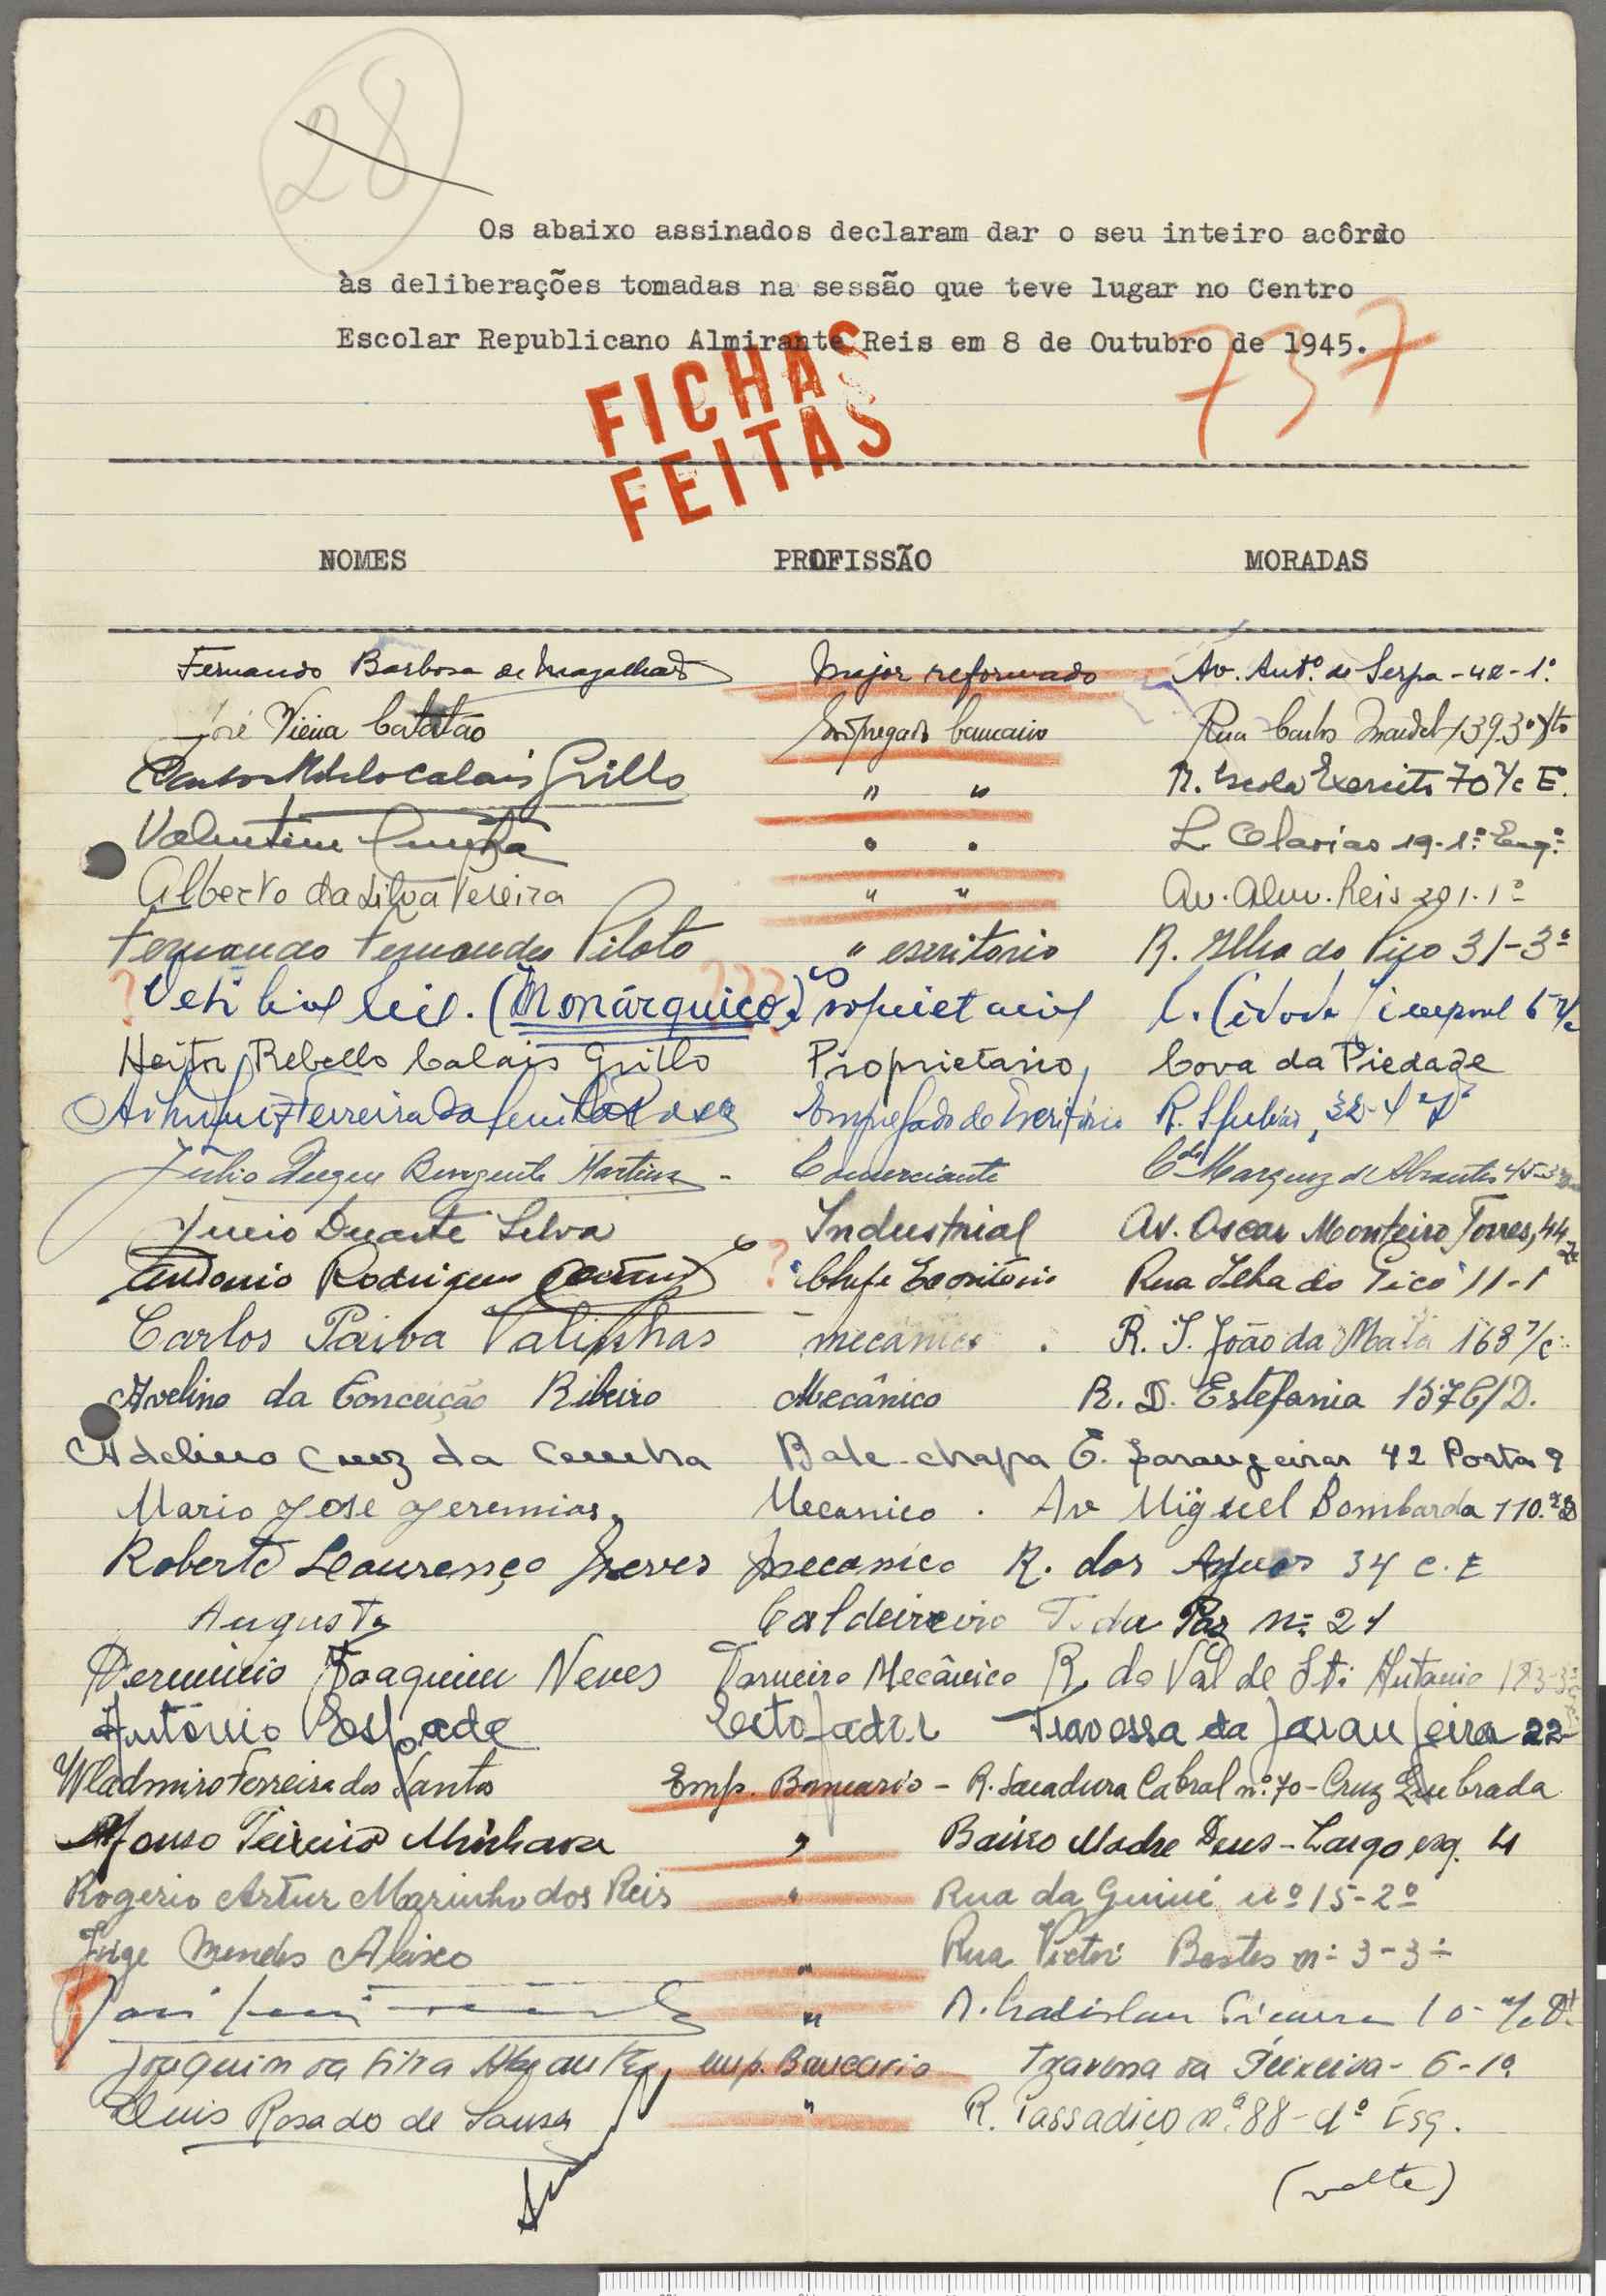 28
Os abaixo assinados declaram dar o seu inteiro acôrdo
às deliberações tomadas na sessão que teve lugar no Centro
Escolar Republicano Almirante Reis em 8 de Outubro de 1945.
737
FICHAS
FEITAS
NOMES PROFISSÃO MORADAS
Fernando Barbosa de Magalhães Major reformado Av. Antº. de Serpa - 42 - 1º
José Vieira Catatão Empregado bancario Rua Carlos Mardel 139 3º
Calais Grillo " " R. Escola Exercito 70 r/c E.
Valentim Cunha " " L. Olarias 19-1º Esqº
Alberto da Silva Pereira " " Av. Alm. Reis 201-1º
Fernando Fernandes Piloto " escritorio R. Ilha do Pico 31-3º
? (Monárquico) ??? Proprietario
Heitor Rebello Calais Grillo Proprietario Cova da Piedade
Ferreira da Empregado de Escritório R.
Julio Martins - Comerciante Marquez de Abrantes 45-3
Lucio Duarte Silva Industrial Av. Oscar Monteiro Torres, 44
Antonio Rodrigues ? Chefe Escritório Rua Ilha do Pico 11-1
Carlos Paiva Valinhas mecanico . R. S. João da Mata 168 r/c
Avelino da Conceição Ribeiro Mecânico R. D. Estefania 157 C/D.
Adelino Cruz da Cunha Bate-chapa C. Laranjeiras 42 Porta 9
Mario Jose Jeremias Mecanico . Av Miguel Bombarda 110.
Roberto Lourenço Neves mecanico R. dos 34 C. E
Augusto Caldeireiro T. da Paz nº 21
Herminio Joaquim Neves Torneiro Mecânico R. do Val de Stº Antonio 183-3º
António Espada Estofador Travessa da Laranjeira 22
Wladmiro Ferreira dos Santos Emp. Bancario - R. Sacadura Cabral nº 70 - Cruz Quebrada
Afonso Teixeira " Bairro Madre Deus - Largo esq. 4
Rogerio Artur Marinho dos Reis " Rua da Guiné nº 15-2º
Jorge Mendes Aleixo " Rua Victor Bastos nº 3-3º
" R. Ladislau 10 - r/c
Joaquim da Silva emp. Bancario Travessa da Teixeira - 6-1º
Luis Rosado de Sousa " R. Passadiço nº 88-1º Esq.
(volte)